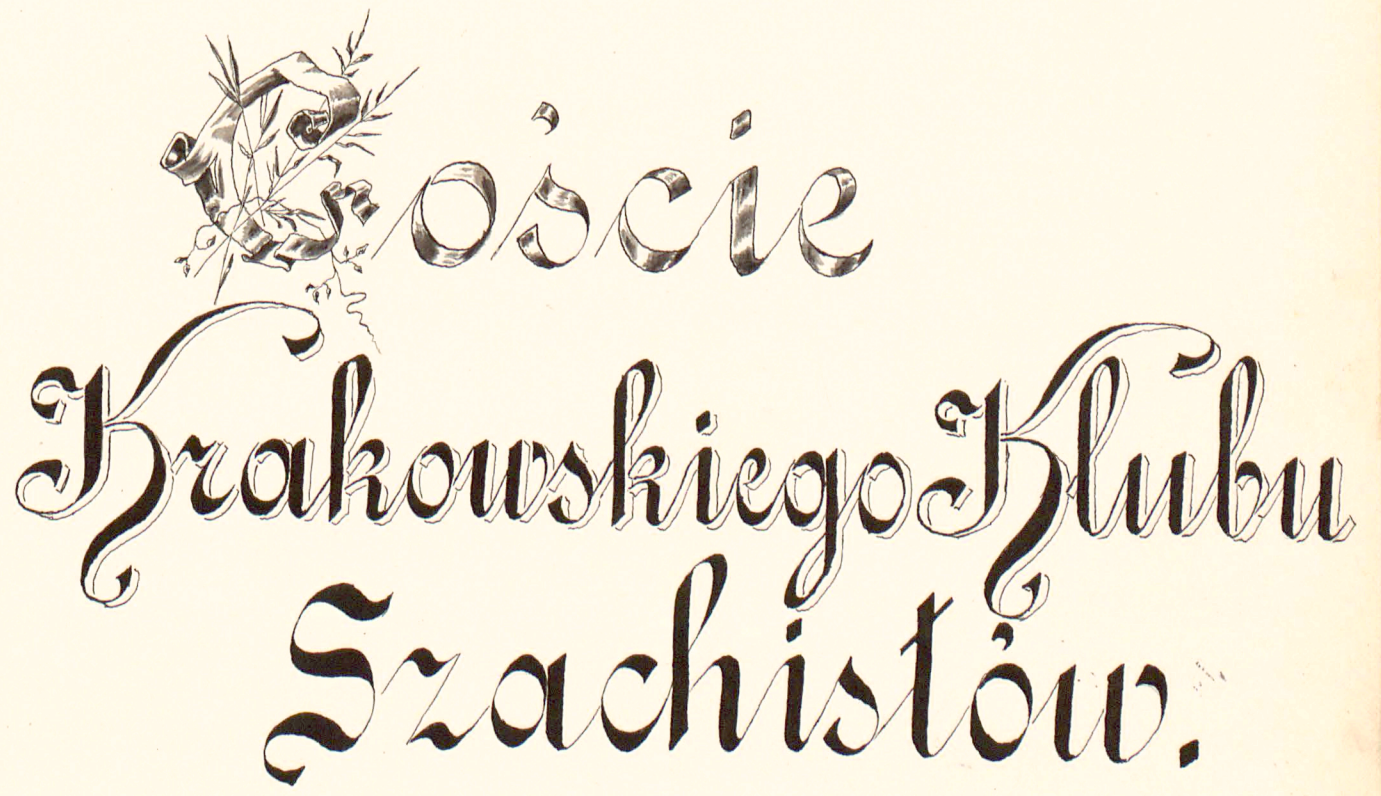 Goście
Krakowskiego Klubu
Szachistów.